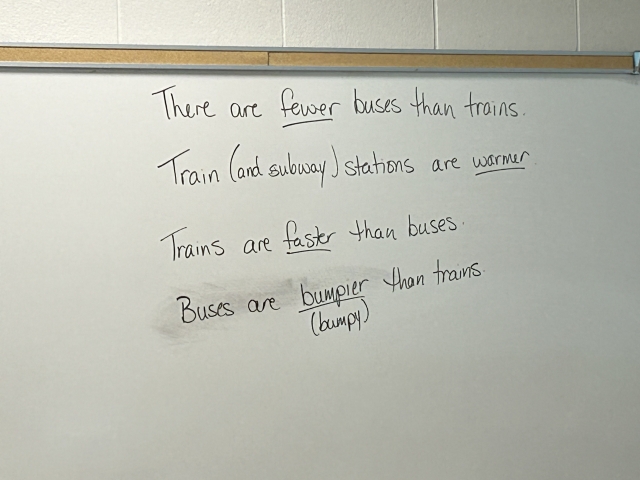 There are fewer buses than trains.
Train (and subway) stations are warmer
Trains are faster than buses.
Buses are bumpier than trains.
(bumpy)